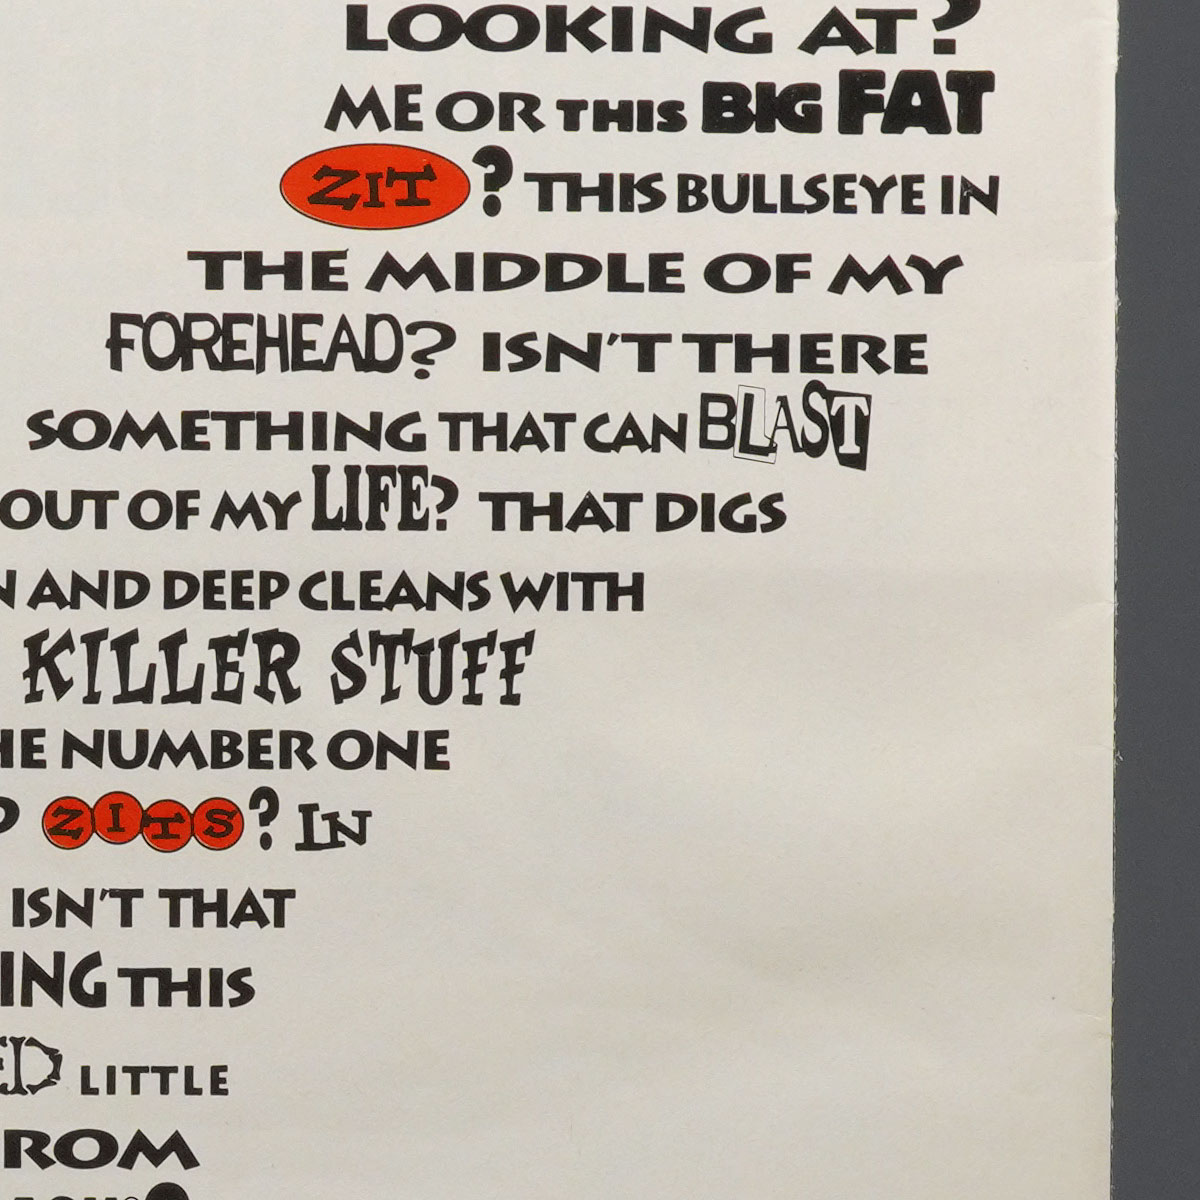 LOOKING AT?
ME OR THIS BIG FAT
ZIT? THIS BULLSEYE IN
THE MIDDLE OF MY
FOREHEAD? ISN'T THERE
SOMETHING THAT CAN BLAST
OUT OF MY LIFE? THAT DIGS
AND DEEP CLEANS WITH
KILLER STUFF
NUMBER ONE
ZITS? IN
ISN'T THAT
THIS
LITTLE